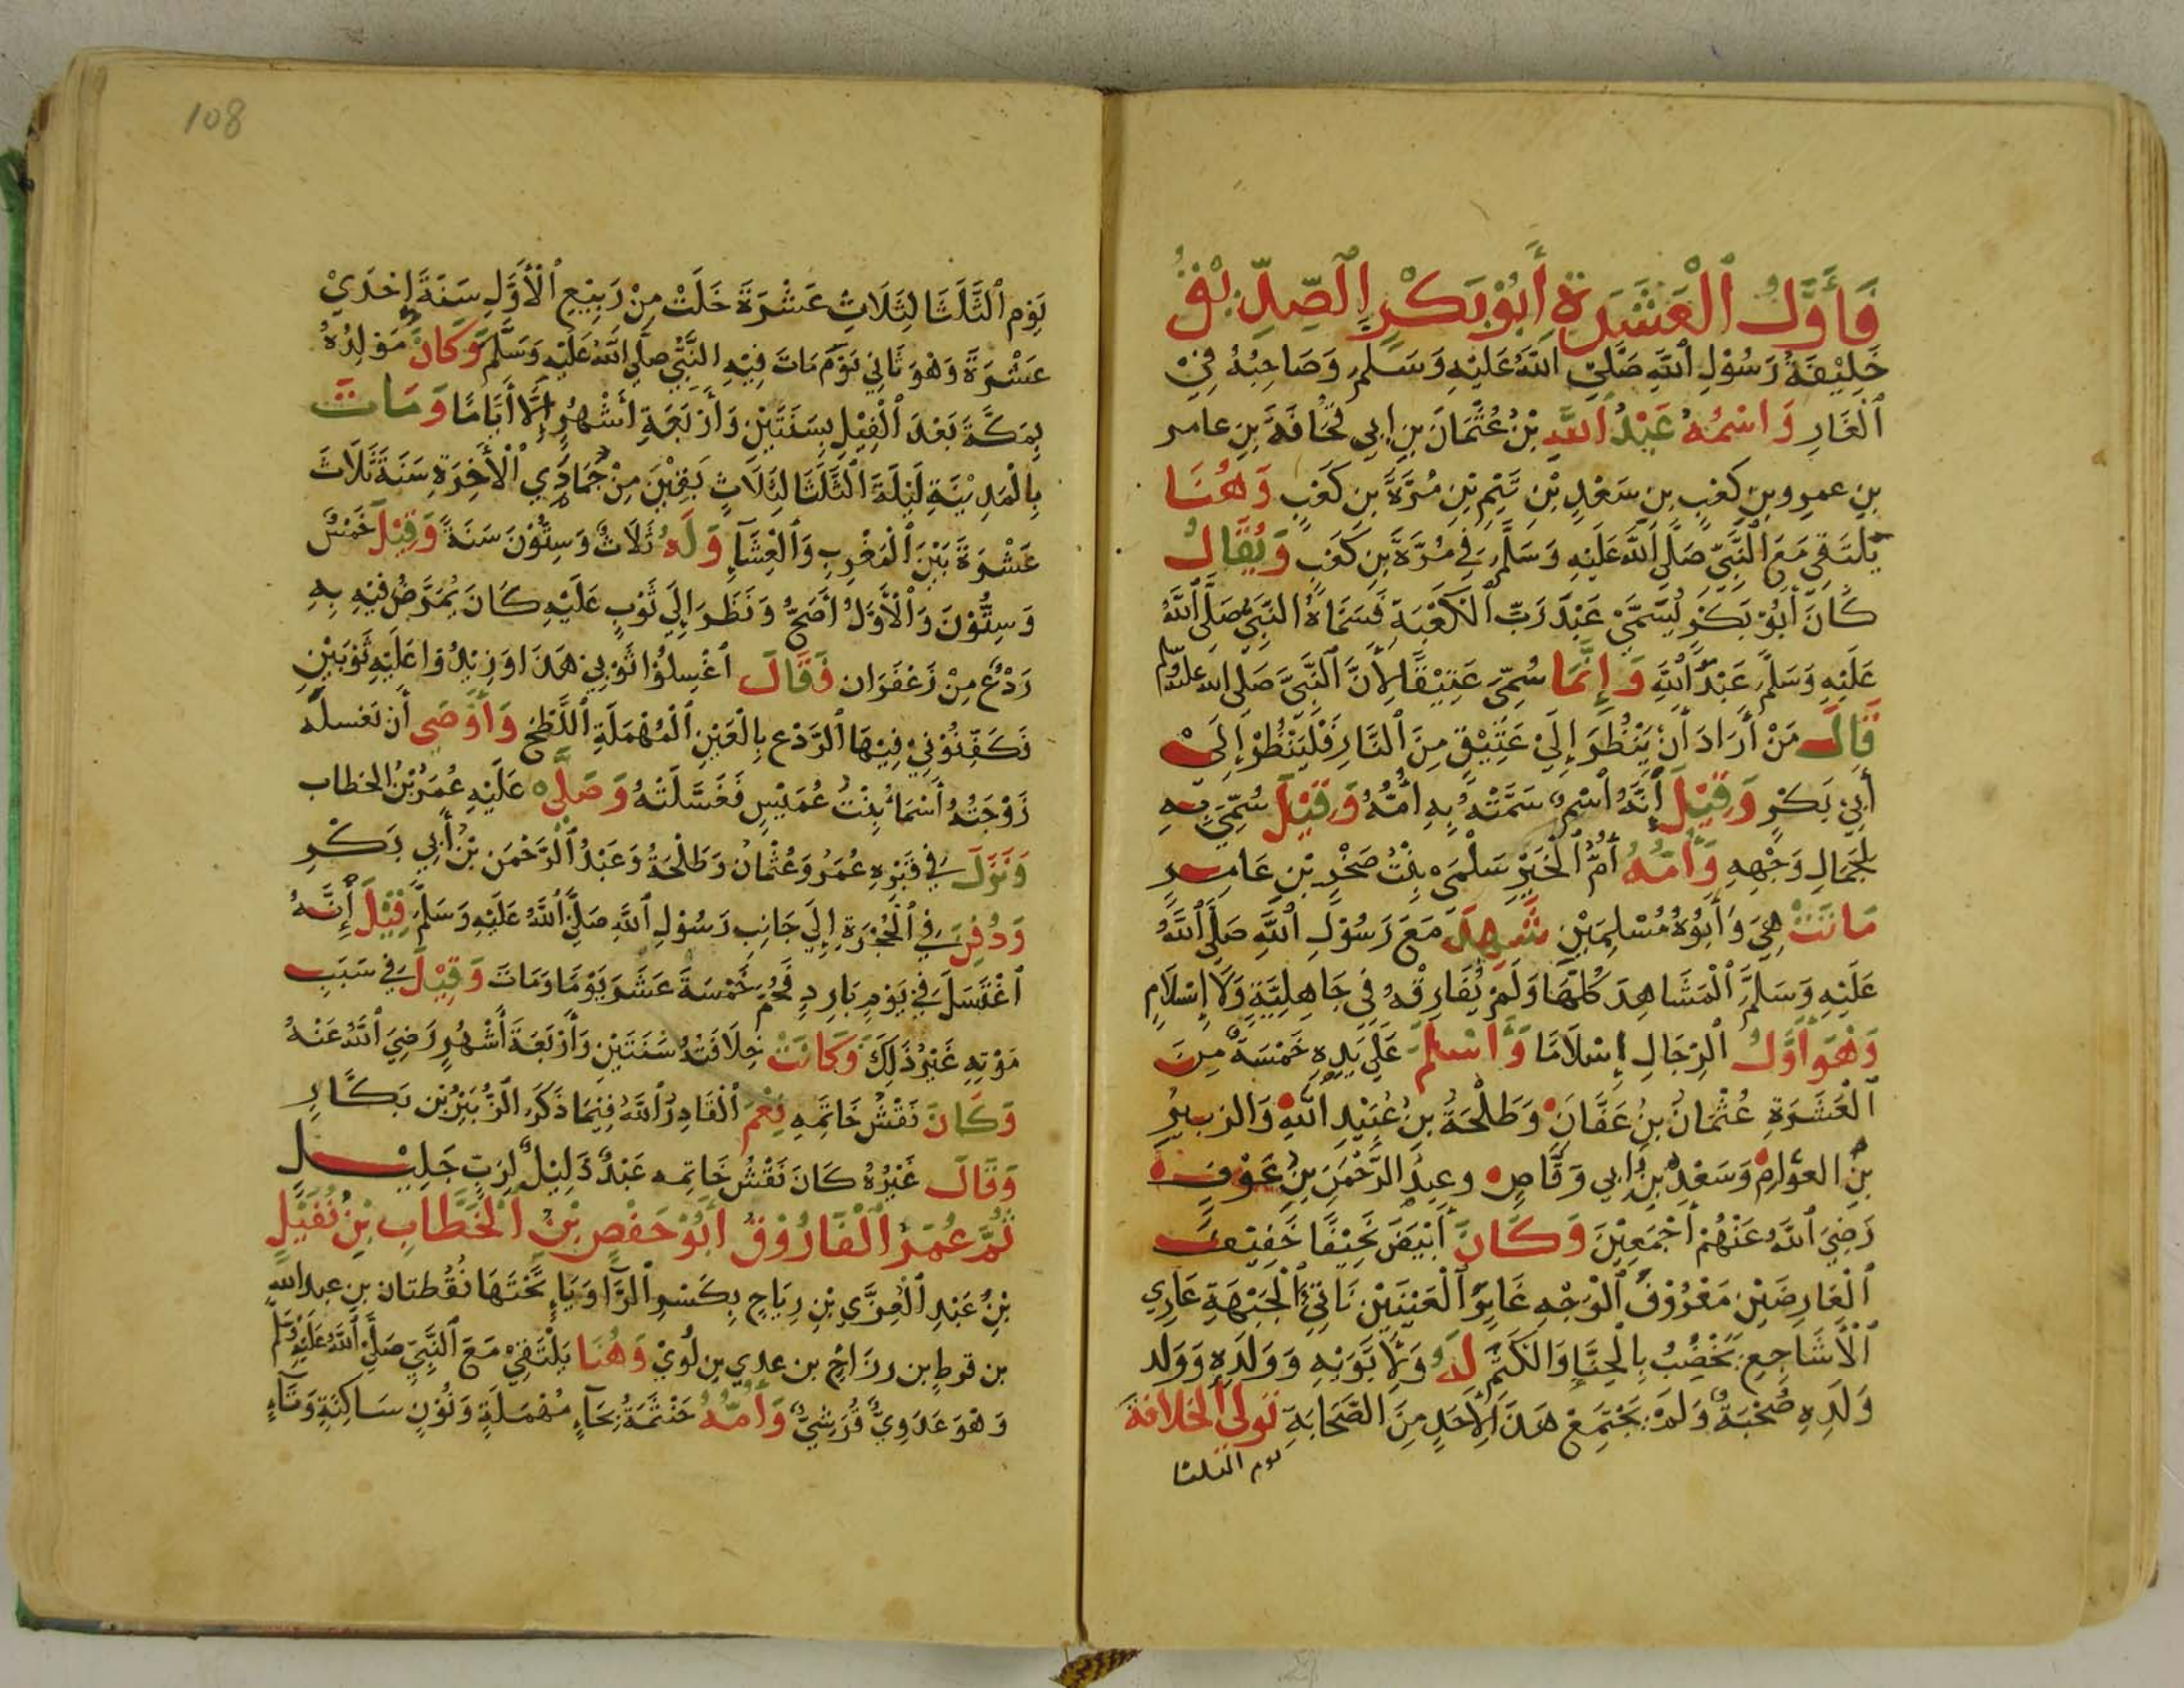 فَأَوَّلُ ٱلْعَشَرَةِ أَبُوْ بَكْرٍ ٱلصِّدِّيْقُ
خَلِيْفَةُ رَسُوْلِ ٱللَّهِ صَلَّىْ اللَّهُ عَلَيْهِ وَسَلَّمَ وَصَاحِبُهُ فِيْ
ٱلْغَارِ وَاسْمُهُ عَبْدُ اللَّهِ بْنُ عُثْمَانَ بنِ ابي قُحَافَةَ بنِ عامر
بنِ عمرِو بنِ كَعْبِ بنِ سَعْدِ بْنِ تَيْمِ بْنِ مُرَّةَ بنِ كَعْبٍ وَهُنَا
يَلْتَقِيْ مَعَ النَّبِيِّ صَلَّى اللَّهُ عَلَيْهِ وَسَلَّمَ فِي مُرَّةَ بنِ كَعْبٍ وَيُقَالُ
كَانَ أَبُوْ بَكْرٍ يُسَمَّىْ عَبْدَ رَبِّ ٱلْكَعْبَةِ فَسَمَّاهُ النَّبِيُّ صَلَّى ٱللَّهُ
عَلَيْهِ وَسَلَّمَ عَبْدَ اللَّهِ وَإِنَّمَا سُمِّيَ عَتِيْقًا لِأَنَّ ٱلنَّبِيَّ صَلى الله عليه وسلم
قَالَ مَنْ أَرَادَ أَنْ يَنْظُرَ إِلَىْ عَتِيْقٍ مِنَ ٱلنَّارِ فَلْيَنْظُرْ إِلَىْ
أَبِيْ بَكْرٍ وَقِيْلَ إِنَّهُ ٱسْمٌ سَمَّتْهُ بِهِ أُمُّهُ وَقِيْلَ سُمِّيَ بِهِ
لِجَمَالِ وَجْهِهِ وَأُمُّهُ أُمُّ ٱلْخَيْرِ سَلْمَىْ بِنْتُ صَخْرِ بْنِ عَامِرٍ
مَاتَتْ هِيَ وَأَبُوْهُ مُسْلِمَيْنِ شَهِدَ مَعَ رَسُوْلِ ٱللَّهِ صَلَّى ٱللَّهُ
عَلَيْهِ وَسَلَّمَ ٱلْمَشَاهِدَ كُلَّهَا وَلَمْ يُفَارِقْهُ فِي جَاهِلِيَّةٍ وَلَا إِسْلَامٍ
وَهُوَ أَوَّلُ ٱلرِّجَالِ إِسْلَامًا وَأَسْلَمَ عَلَى يَدِهِ خَمْسَةٌ مِنَ
ٱلْعَشَرَةِ عُثْمَانُ بنُ عَفَّانَ وَطَلْحَةُ بنُ عُبَيْدِ اللَّهِ وَالزبيرُ
بنُ العوَّامِ وَسَعْدُ بنُ ابي وَقَّاصٍ وعبدُ الرَّحْمَنِ بنُ عَوْفٍ
رَضِيَ ٱللَّهُ عَنْهُمْ أَجْمَعِيْنَ وَكَانَ أَبْيَضَ نَحِيْفًا خَفِيْفَ
ٱلْعَارِضَيْنِ مَعْرُوْقَ ٱلْوَجْهِ غَايِرَ ٱلْعَيْنَيْنِ نَاتِئَ ٱلْجَبْهَةِ عَارِي
ٱلْأَشَاجِعِ يَخْضِبُ بِالْحِنَّاءِ وَالْكَتَمِ لَهُ وَلِأَبَوَيْهِ وَوَلَدِهِ وَوَلَدِ
وَلَدِهِ صُحْبَةٌ وَلَمْ يَجْتَمِعْ هَذَا لِأَحَدٍ مِنَ الصَّحَابَةِ تَوَلَّى الْخِلَافَةَ
يوم الثلثا
108
يَوْمَ ٱلثَّلَثَا لِثَلَاثِ عَشْرَةَ خَلَتْ مِنْ رَبِيْعِ ٱلْأَوَّلِ سَنَةَ إِحْدَيْ
عَشْرَةَ وَهْوَ ثَانِيْ يَوْمَ مَاتَ فِيْهِ النَّبِيُّ صلَّى اللَّهُ عَلَيْهِ وَسَلَّمَ وَكَانَ مَوْلِدُهُ
بِمَكَّةَ بَعْدَ ٱلْفِيْلِ بِسَنَتَيْنِ وَأَرْبَعَةِ أَشْهُرٍ إِلَّا أَيَّامًا وَمَاتَ
بِالْمَدِيْنَةِ لَيْلَةَ ٱلثَّلَثَا لِثَلَاثٍ بَقِيْنَ مِنْ جُمَادَي ٱلْأَخِرَةِ سَنَةَ ثَلَاثَ
عَشْرَةَ بَيْنَ ٱلْمَغْرِبِ وَٱلْعِشَآءِ وَلَهُ ثَلَاثٌ وَسِتُّوْنَ سَنَةً وَقِيْلَ خَمْسٌ
وَسِتُّوْنَ وَٱلْأَوَّلُ أَصَحُّ وَنَظَرَ إِلَي ثَوْبٍ عَلَيْهِ كَانَ يُمَرَّضُ فِيْهِ بِهِ
رَدْعٌ مِنْ زَعْفَرَان فَقَالَ ٱغْسِلُوْا ثَوْبِيْ هَذَا وَزِيْدُوْا عَلَيْهِ ثَوْبَيْنِ
فَكَفِّنُوْنِيْ فِيْهَا ٱلرَّدْعِ بِالْعَيْنِ ٱلْمُهْمَلَةِ ٱللَّطْخ وَأَوْصَي أَنْ تَغسلَه
زَوْجَتُهُ أَسْمَاءُ بِنْتُ عُمَيْسٍ فَغَسَّلَتْهُ وَصَلَّى عَلَيْهِ عُمَرُ بْنُ الخطاب
وَنَزَلَ فِي قَبْرِهِ عُمَرُ وَعُثْمَانُ وَطَلْحَةُ وَعَبْدُ ٱلرَّحْمَنِ بْنُ أَبِي بَكْرٍ
وَدُفِنَ فِي ٱلْحُجْرَةِ إِلَي جَانِبِ رَسُوْلِ ٱللَّهِ صَلَّى ٱللَّهُ عَلَيْهِ وَسَلَّمَ قِيْلَ أَنَّهُ
ٱغْتَسَلَ فِي يَوْمٍ بَارِدٍ فَحُمَّ خَمْسَةَ عَشَرَ يَوْمًا وَمَاتَ وَقِيْلَ فِي سَبَبِ
مَوْتِهِ غَيْرُ ذَلِكَ وَكَانَتْ خِلَافَتُهُ سَنَتَيْنِ وَأَرْبَعَةَ أَشْهُرٍ رَضِيَ ٱللَّهُ عَنْهُ
وَكَانَ نَقْشُ خَاتَمِهِ نِعْمَ ٱلْقَادِرُ ٱللَّهُ فِيْمَا ذَكَرَ الزُّبَيْرُ بْن بَكَّارٍ
وَقَالَ غَيْرُهُ كَانَ نَقْشُ خَاتِمه عَبْدٌ ذَلِيْلٌ لِرَبٍّ جَلِيْلٍ
ثُمَّ عُمَرُ ٱلْفَارُوْقُ أَبُوْ حَفْصٍ بْنُ ٱلْخَطَّابِ بْنِ نُفَيْلِ
بْنِ عَبْدِ ٱلْعُزَّي بْنِ رِيَاحٍ بِكَسْرِ ٱلرَّا وَيَاءٍ تَحْتَهَا نُقْطَتان بنِ عبد الله
بن قرطِ بن رزَاحِ بن عدي بن لُويْ وَهُنَا يَلْتَقِيْ مَعَ ٱلنَّبِيِّ صَلَّىْ ٱللَّهُ عَلَيْهِ وَسَلَّمَ
وَهْوَ عَدَوِيٌّ قُرَشِيٌّ وَأُمُّهُ حَنْتَمَةُ بِحَآءٍ مُهْمَلَةٍ وَنُوْنٍ سَاكِنَةٍ وَتَآءٍ